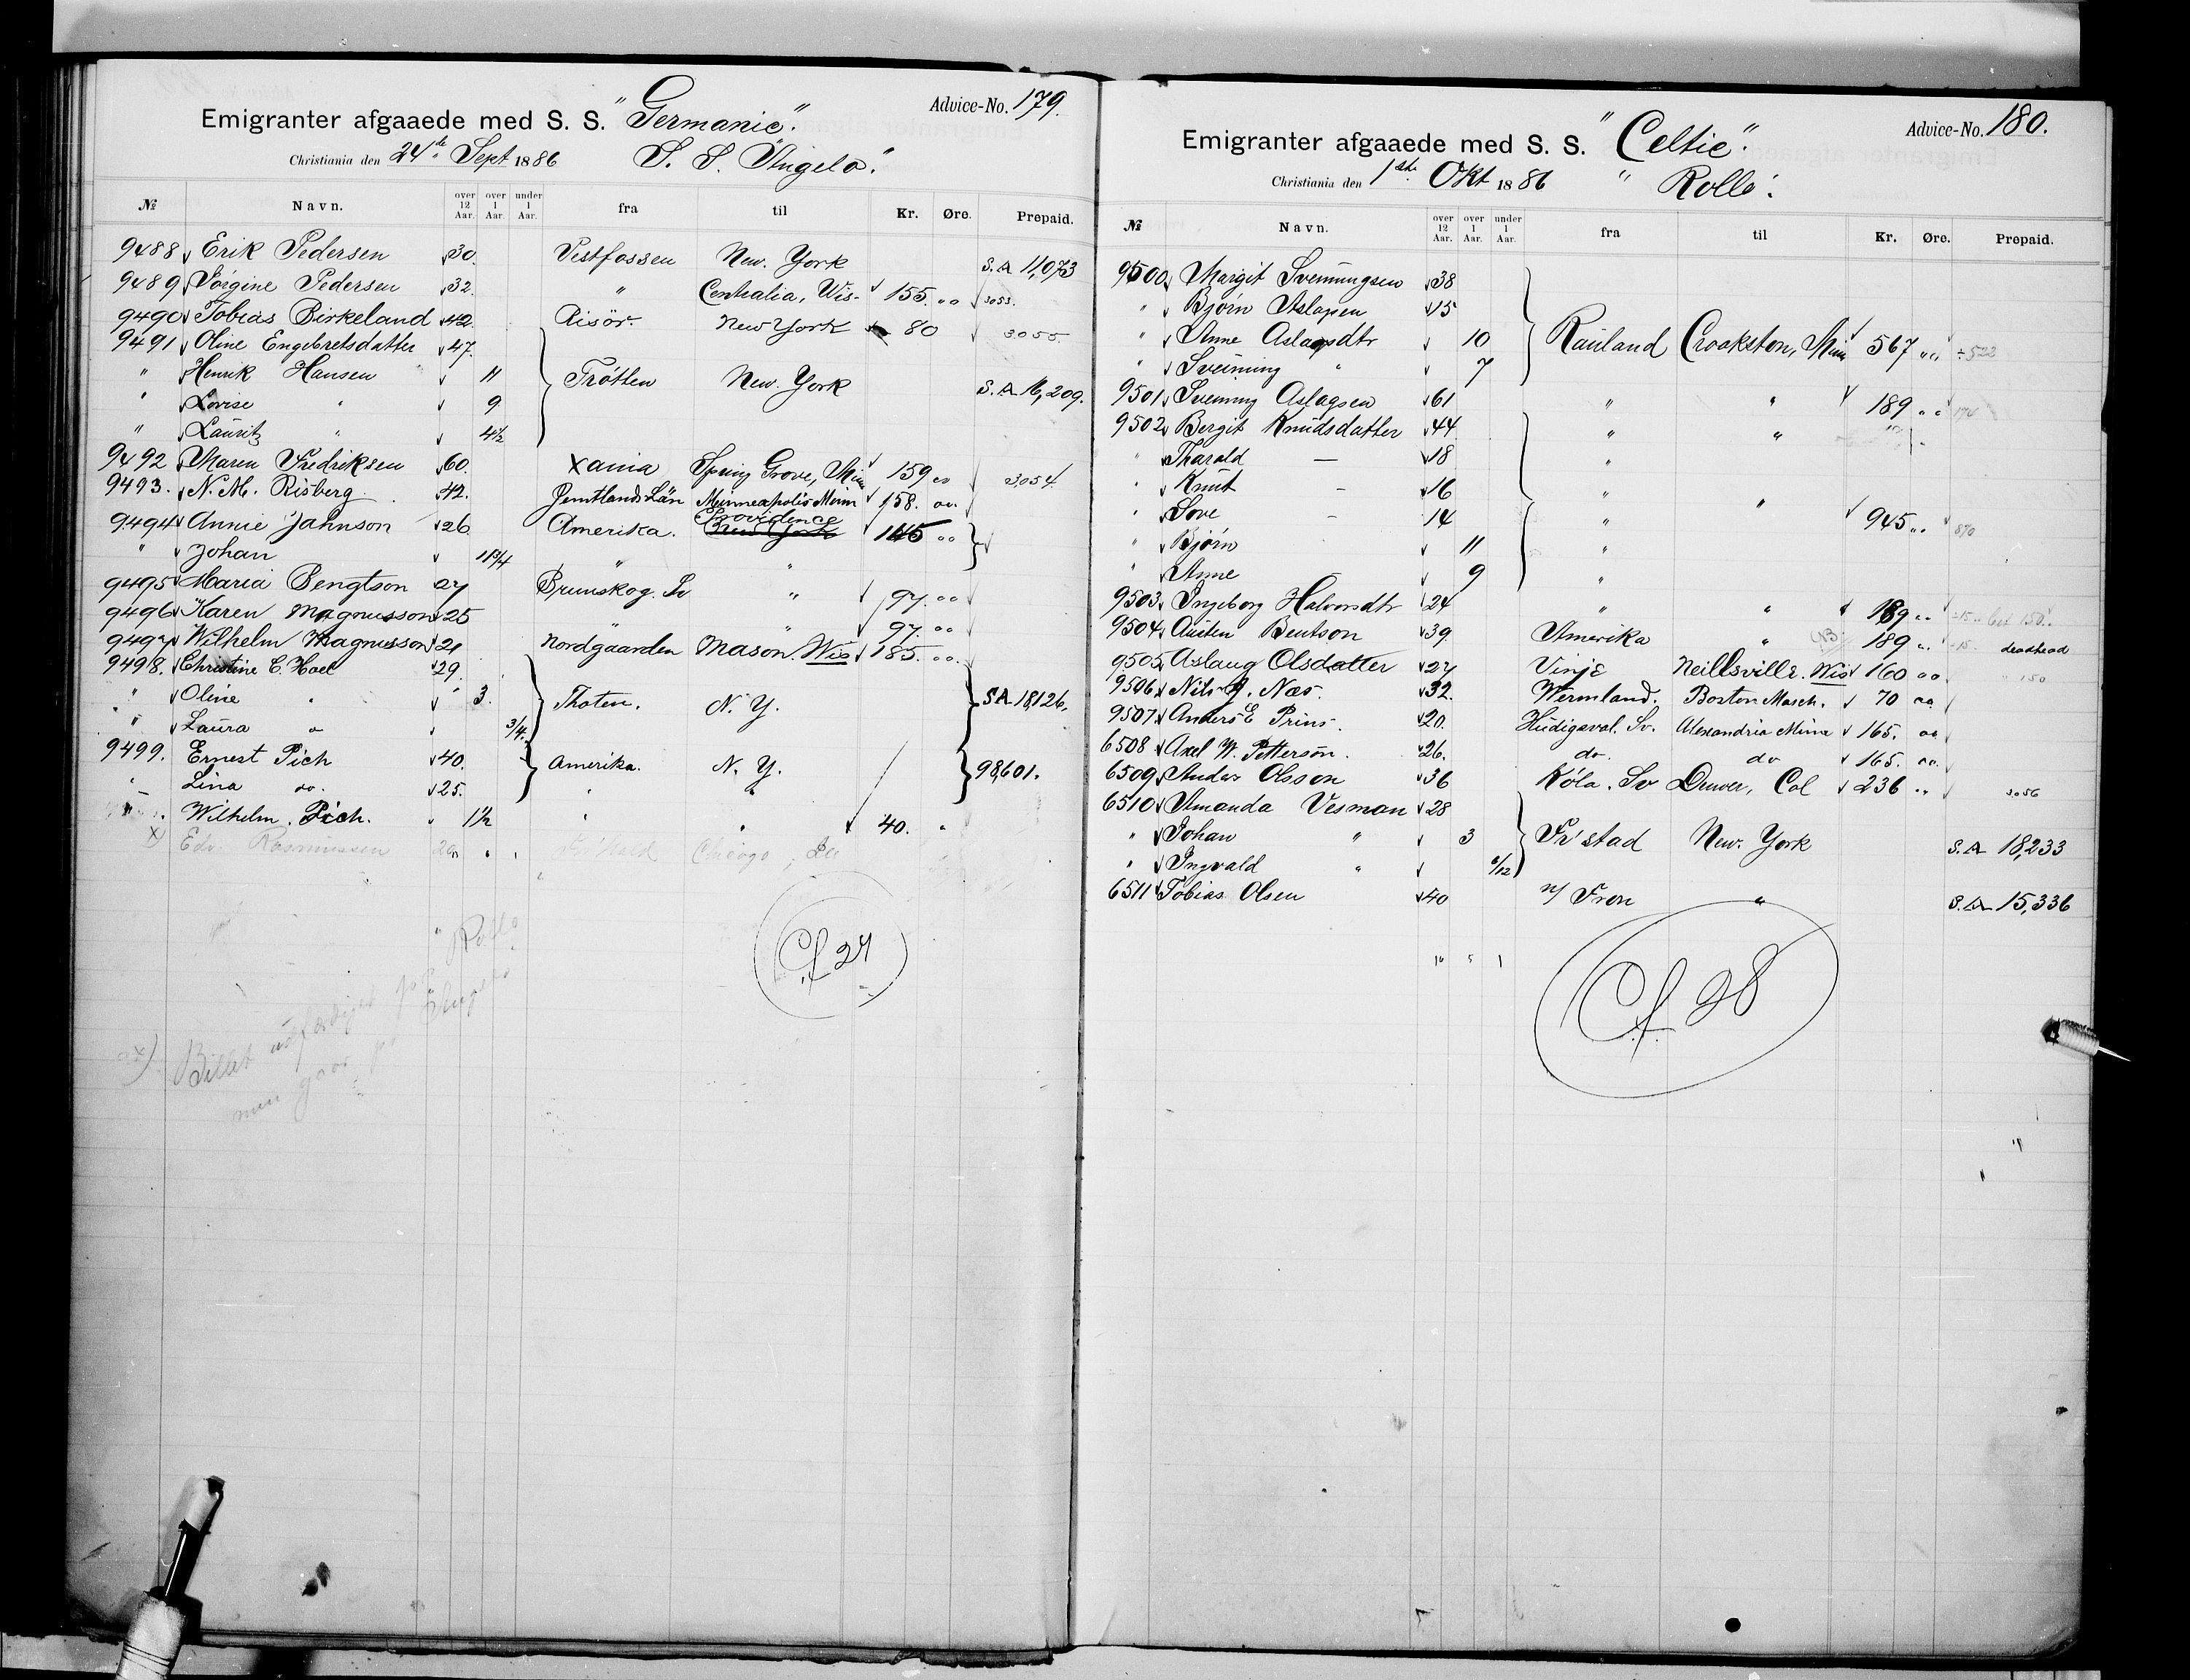 Advice-No. 179.
Emigranter afgaaede med S. S. "Germanic".
Christiania den 24de Sept 1886 S. S. "Angelo".
No Navn. over 12 Aar. over 1 Aar. under 1 Aar. fra til Kr. Øre. Prepaid.
9488 Erik Pedersen 30. Vestfossen New. York S.A 11,073
9489 Jørgine Pedersen 32. " Centralia, Wis. 155. " 3053.
9490 Tobias Birkeland 42. Risör. New York 80 3055.
9491 Oline Engebretsdatter 47.
" Henrik Hansen 11 Trötten New. York S.A 16,209.
" Lovise " 9
" Lauritz " 4½
9492 Maren Fredriksen 60. Xania Spring Grove, Min 159 oo 3054
9493. N. M. Risberg. 42. Jemtlands Län Minneapolis Minn 158. oo.
9494 Annie Johnson 26 Amerika. Providence New York 145 oo
" Johan 11¾ " "
9495 Maria Bengtson 27 Brunskog. Sv " 97. oo
9496 Karen Magnusson 25 " " 97. oo
9497 Wilhelm Magnusson 21 Nordgaarden Mason. Wis 185. oo.
9498. Christine C. Hoel 29.
" Oline " 3. Thoten. N. Y. SA 18,126.
" Laura " 3/4.
9499. Ernest Pich 40. Amerika. N. Y. 98,601.
" Lina do. 25. " "
" Wilhelm. Pich. 1½ " " 40. "
x) Edv. Rasmussen Chicago, Ill
Cf 27
" Rollo
x) Billet udfærdiget for
men gaar pr Angelo
Advice-No. 180.
Emigranter afgaaede med S. S. "Celtic".
Christiania den 1ste Okt 1886 " Rollo".
No Navn. over 12 Aar. over 1 Aar. under 1 Aar. fra til Kr. Øre. Prepaid.
9500 Margit Sveinungsen 38
" Bjørn Aslagsen 15
" Anne Aslagsdtr 10 Rauland Crookston, Minn 567 " ÷522
" Sveinung " 7
9501 Sveinung Aslagsen 61 " " 189 " 174
9502 Bergit Knudsdatter 44 " "
" Tharald — 18 "
" Knut — 16 " "
" Tove — 14 " 945 " 870
" Bjørn 11 "
" Anne 9 "
9503 Ingeborg Halvorsdtr 24 " " 189 "
9504 Austen Bentson 39 Amerika " 189 " -15- deadhead
9505 Aslaug Olsdatter 27 Vinje Neillsville. Wis 160 oo " 150
9506 Nils J. Næs. 32. Wermland. Boston Masch. 70 oo
9507 Anders E Prins. 20. Hudigsval. Sv. Alexandria Minn 165. oo
6508 Axel W. Petterson. 26. do. do 165. oo.
6509 Anders Olsson 36 Köla. Sv Denver, Col 236 " 3056
6510 Amanda Vesman 28
" Johan " 3 Fr'stad New. York S.A 18,233
" Ingvald " 6/12
6511 Tobias Olsen 40 n/ Fron " S.A 15,336
16 5 1
Cf 28